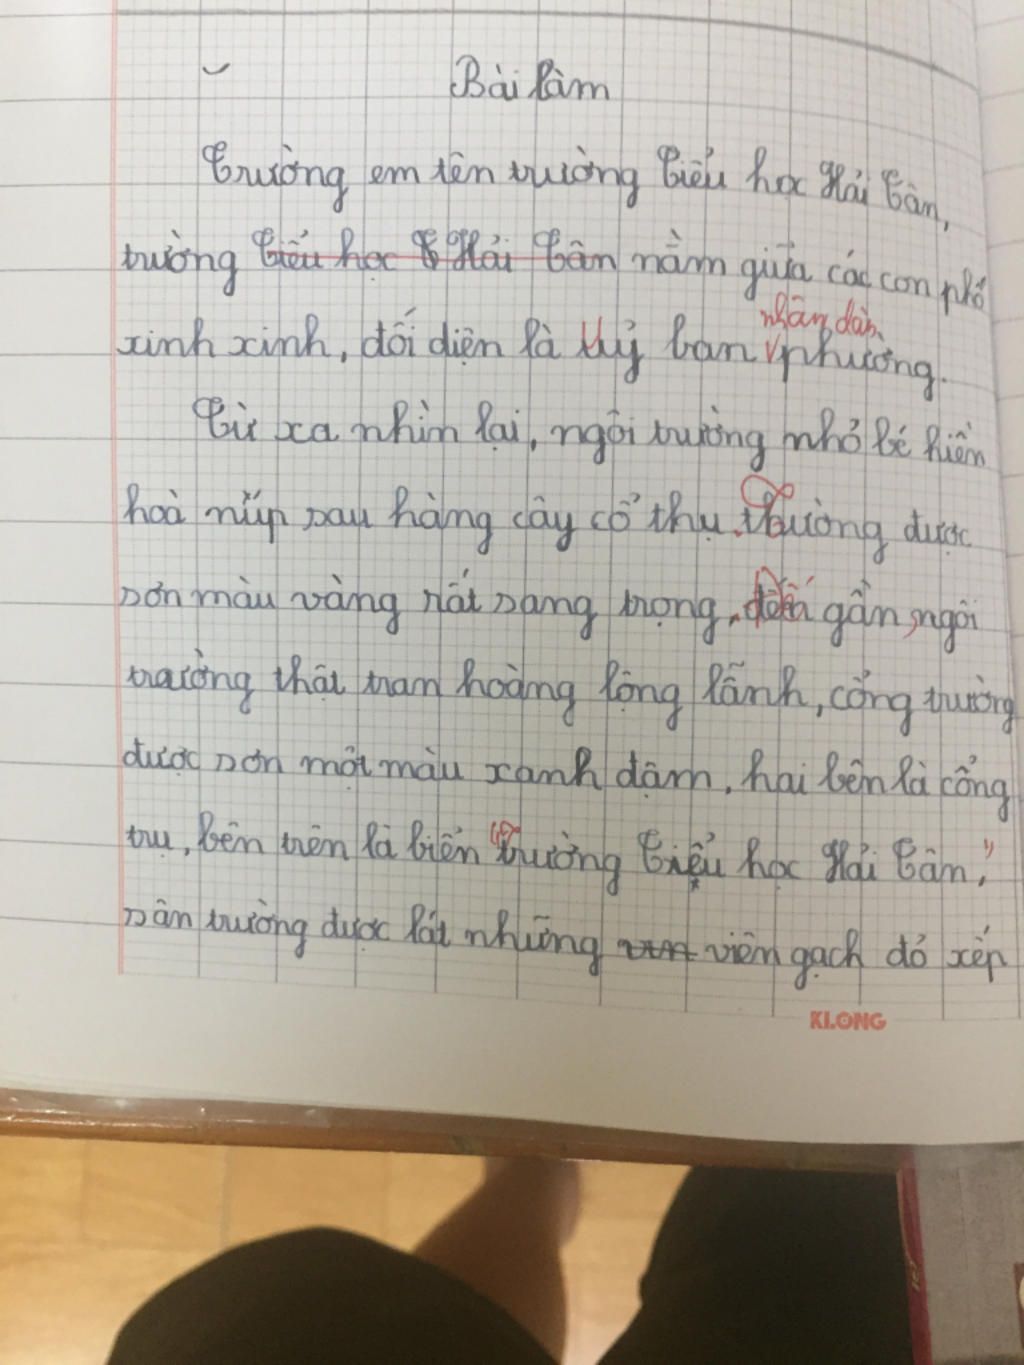 Bài làm
Trường em tên trường Tiểu học Hải Tân,
trường Tiểu học Hải Tân nằm giữa các con phố
xinh xinh, đối diện là Uỷ ban phường.
nhân dân
Từ xa nhìn lại, ngôi trường nhỏ bé hiền
hoà núp sau hàng cây cổ thụ. Trường được
sơn màu vàng rất sang trọng. đến gần, ngôi
trường thật tran hoàng lộng lẫnh, cổng trường
được sơn một màu xanh dậm, hai bên là cổng
trụ, bên trên là biển "Trường Tiểu học Hải Tân,"
sân trường được lát những viên gạch đỏ xếp
KLONG